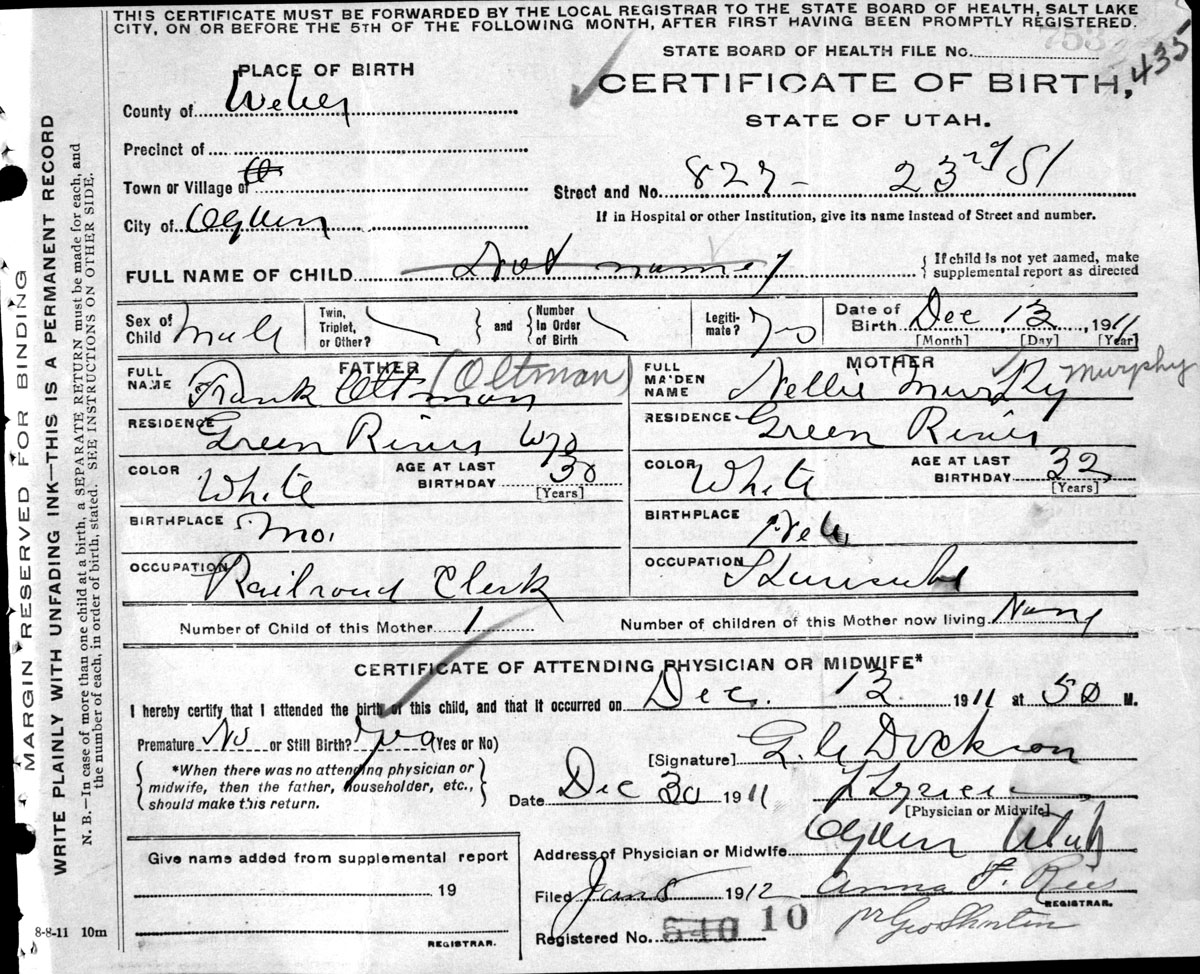 THIS CERTIFICATE MUST BE FORWARDED BY THE LOCAL REGISTRAR TO THE STATE BOARD OF HEALTH, SALT LAKE
CITY, ON OR BEFORE THE 5TH OF THE FOLLOWING MONTH, AFTER FIRST HAVING BEEN PROMPTLY REGISTERED.
753
STATE BOARD OF HEALTH FILE No.
435
PLACE OF BIRTH
CERTIFICATE OF BIRTH,
County of Weber
STATE OF UTAH.
Precinct of
Town or Village of
Street and No. 827- 23rd St
City of Ogden
If in Hospital or other Institution, give its name instead of Street and number.
FULL NAME OF CHILD Not named
{ If child is not yet named, make
supplemental report as directed
Sex of Child Male
Twin, Triplet, or Other? } and { Number In Order of Birth
Legitimate? Yes
Date of Birth Dec, 13, 1911
[Month] [Day] [Year]
FATHER
MOTHER
FULL NAME Frank Ottman (Oltman)
FULL MAIDEN NAME Nellie Murphy Murphy
RESIDENCE Green River Wyo
RESIDENCE Green River
COLOR White AGE AT LAST BIRTHDAY 30 [Years]
COLOR White AGE AT LAST BIRTHDAY 32 [Years]
BIRTHPLACE Mo.
BIRTHPLACE Neb
OCCUPATION Railroad Clerk
OCCUPATION Housewife
Number of Child of this Mother 1
Number of children of this Mother now living None
CERTIFICATE OF ATTENDING PHYSICIAN OR MIDWIFE*
I hereby certify that I attended the birth of this child, and that it occurred on Dec. 13 1911 at 50 M.
Premature No or Still Birth? Yes (Yes or No)
[Signature] Dickson
{ *When there was no attending physician or
midwife, then the father, householder, etc.,
should make this return. }
Date Dec 30 1911
[Physician or Midwife]
Address of Physician or Midwife Ogden Utah
Give name added from supplemental report
19
REGISTRAR.
Filed Jan 5 1912 Anna F. Ries
REGISTRAR.
Registered No. 540 10
pr Geo Shorten
8-8-11 10m
MARGIN RESERVED FOR BINDING
WRITE PLAINLY WITH UNFADING INK—THIS IS A PERMANENT RECORD
N. B.—In case of more than one child at a birth, a SEPARATE RETURN must be made for each, and
the number of each, in order of birth, stated. SEE INSTRUCTIONS ON OTHER SIDE.